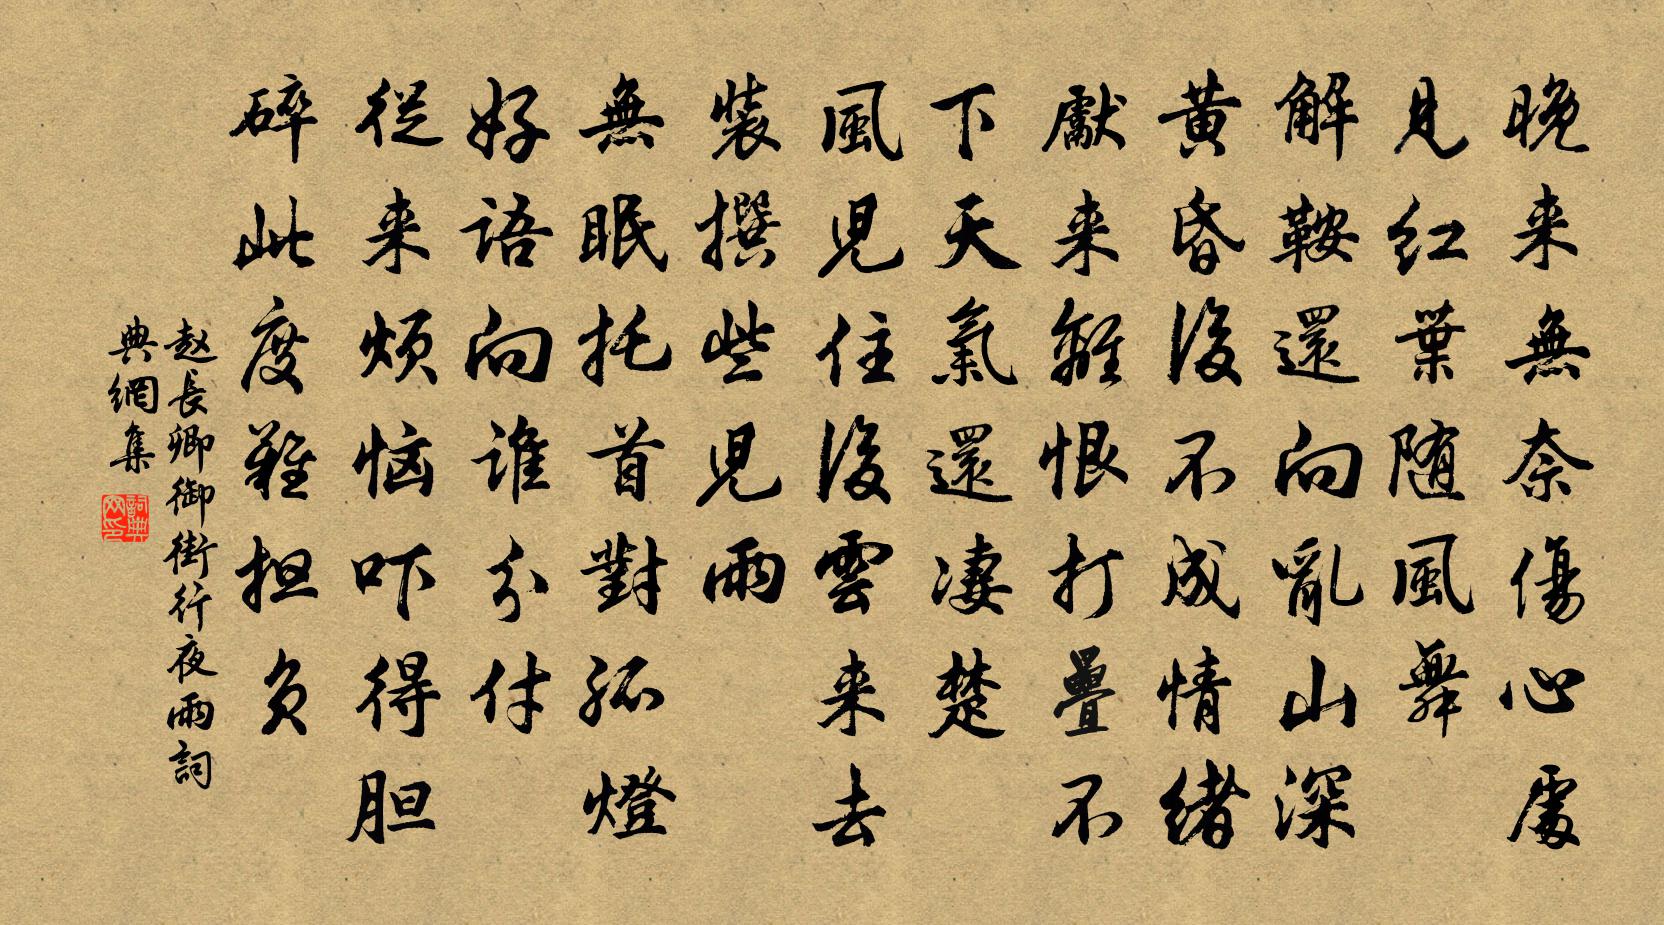 晚来無奈傷心處
見红葉随風舞
解鞍還向亂山深
黄昏後不成情緒
獻来離恨打疊不
下天氣還凄楚
風兒住後雲来去
裝撰些兒雨
無眠托首對孤燈
好語向誰分付
從来烦恼吓得胆
碎此度難担负
赵長卿御街行夜雨詞
典網集
詞典网印